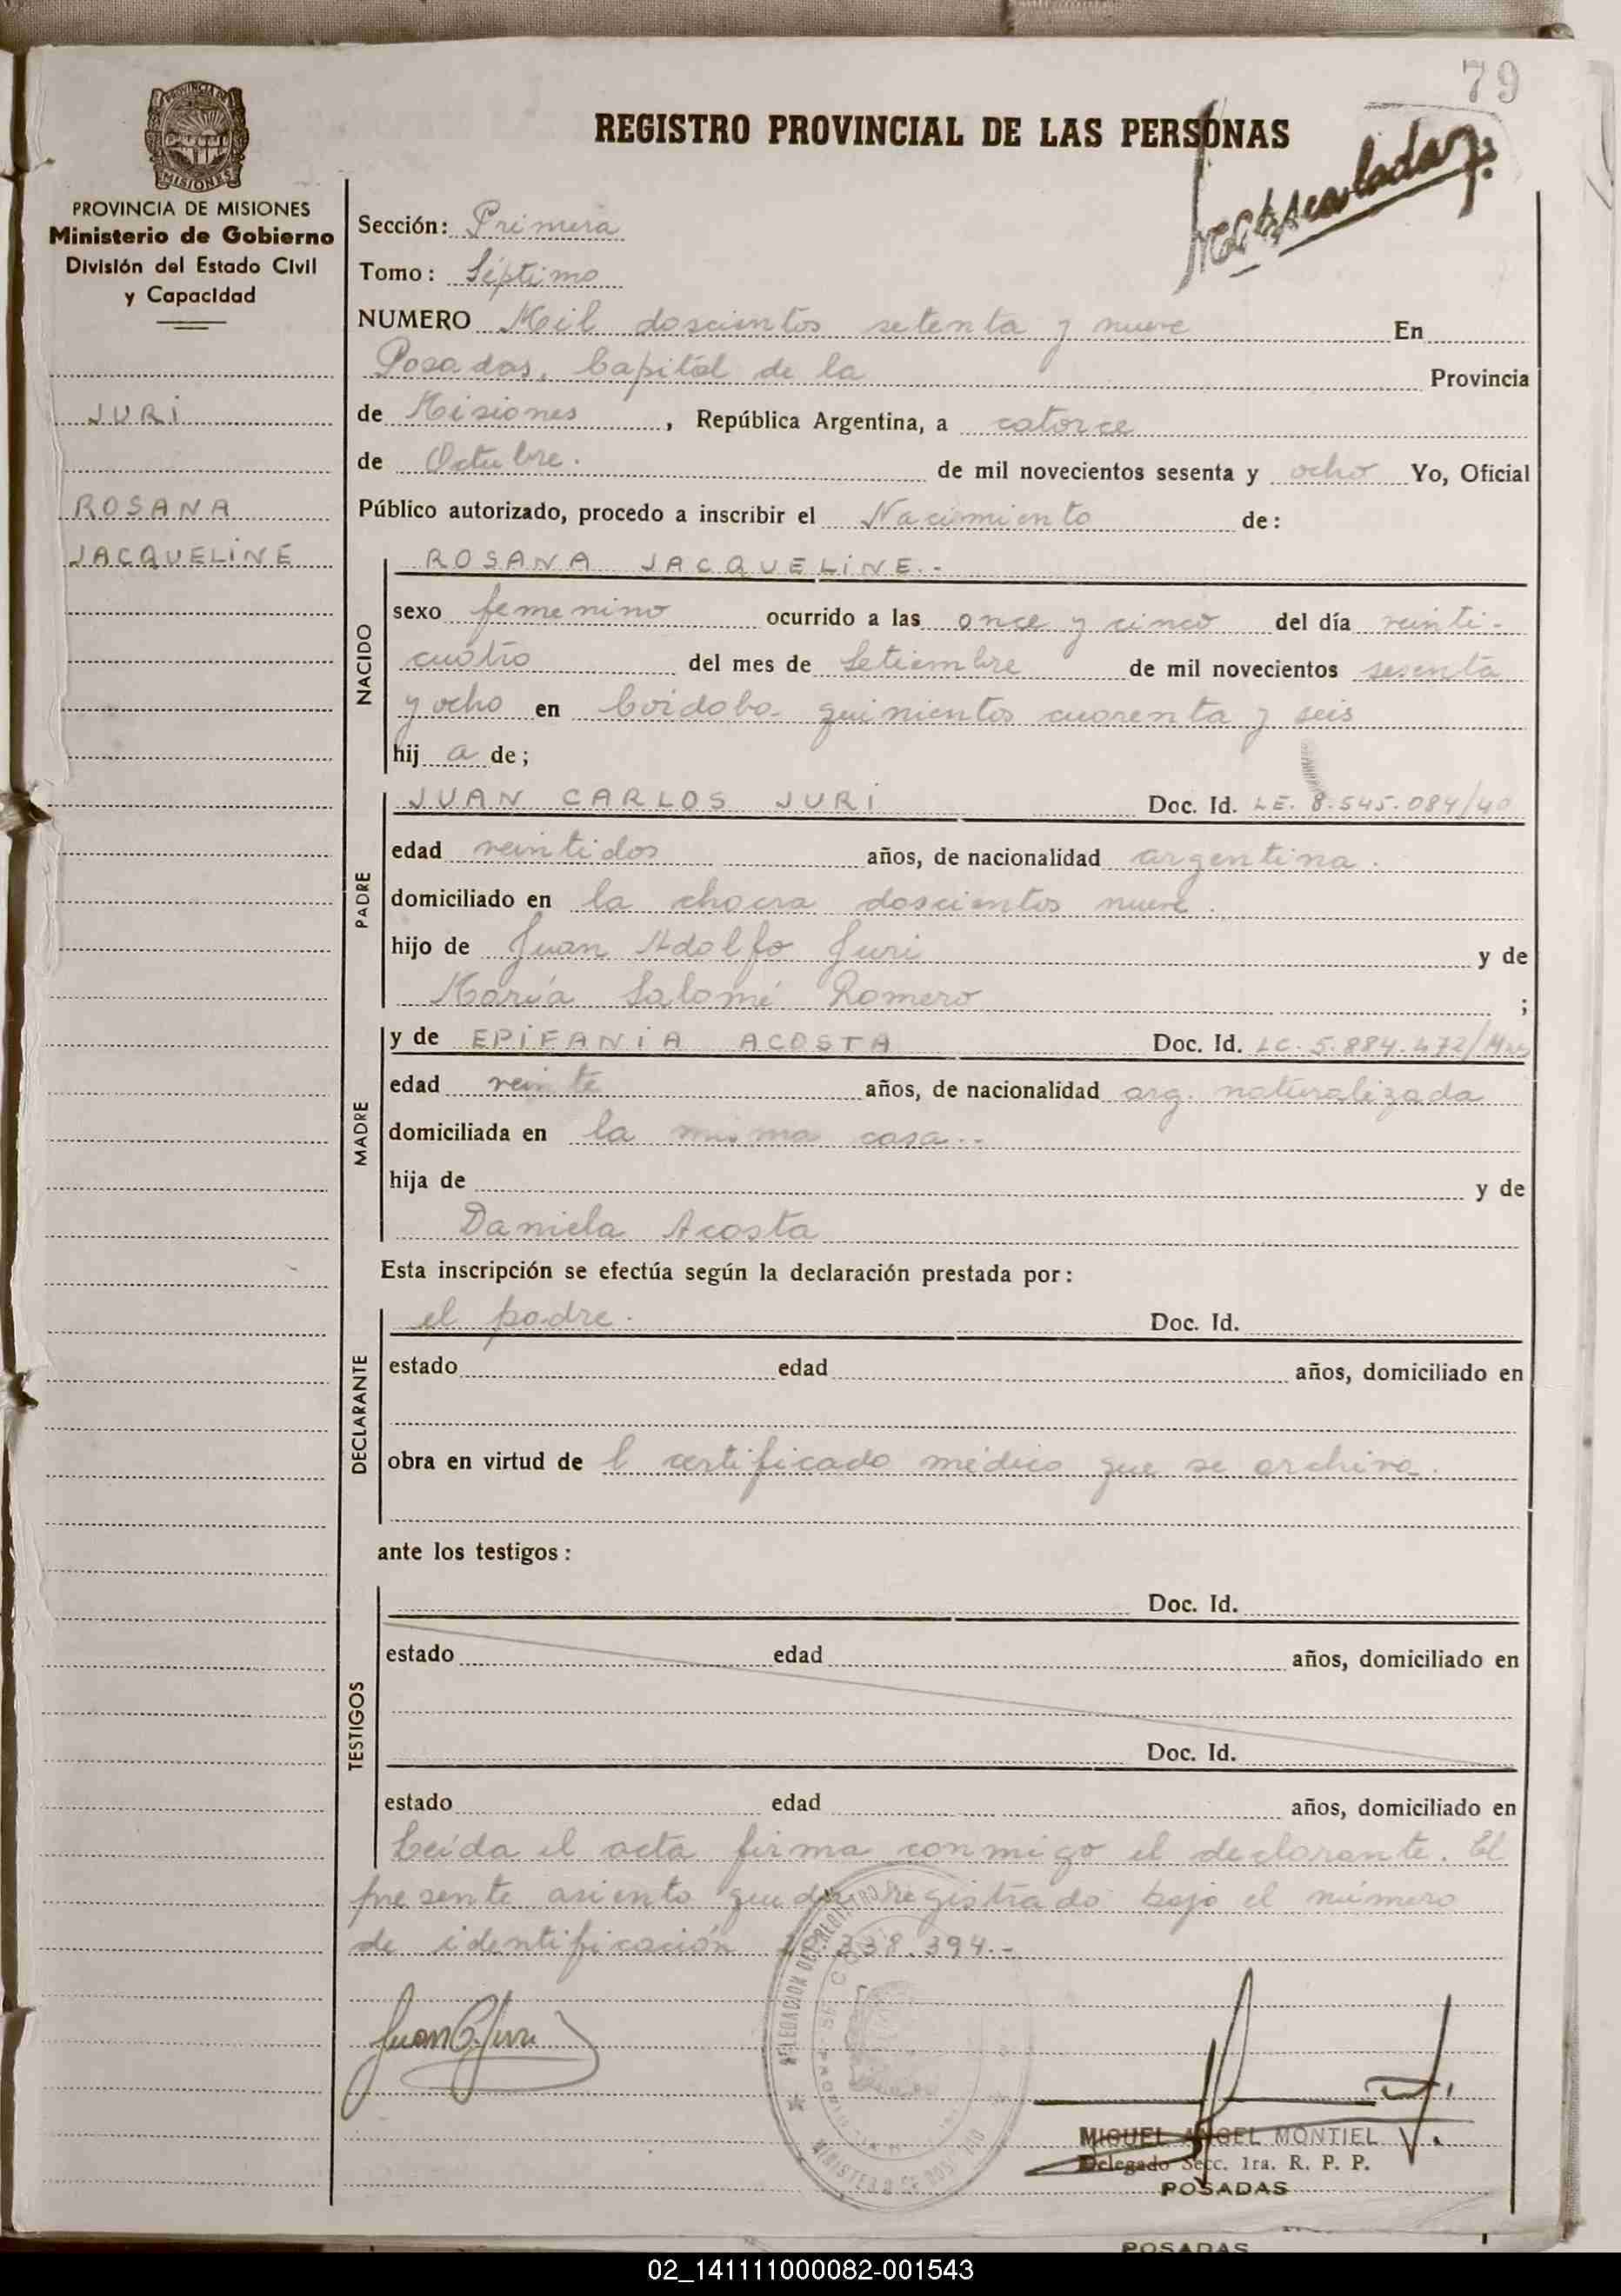 79
REGISTRO PROVINCIAL DE LAS PERSONAS
PROVINCIA DE MISIONES
Ministerio de Gobierno
División del Estado Civil
y Capacidad
JURI
ROSANA
JACQUELINE
Sección: Primera
Tomo: Séptimo
NUMERO Mil doscientos setenta y nueve En
Posadas, Capital de la Provincia
de Misiones, República Argentina, a catorce
de Octubre. de mil novecientos sesenta y ocho Yo, Oficial
Público autorizado, procedo a inscribir el Nacimiento de:
NACIDO
ROSANA JACQUELINE.-
sexo femenino ocurrido a las once y cinco del día veinti-
cuatro del mes de Setiembre de mil novecientos sesenta
y ocho en Córdoba quinientos cuarenta y seis
hij a de;
PADRE
JUAN CARLOS JURI Doc. Id. LE. 8.545.084/40
edad veintidos años, de nacionalidad argentina.
domiciliado en la chacra doscientos nueve.
hijo de Juan Adolfo Juri y de
María Salomé Romero ;
MADRE
y de EPIFANIA ACOSTA Doc. Id. LC. 5.884.472/
edad veinte años, de nacionalidad arg. naturalizada
domiciliada en la misma casa.-
hija de y de
Daniela Acosta
Esta inscripción se efectúa según la declaración prestada por:
DECLARANTE
el padre. Doc. Id.
estado edad años, domiciliado en
obra en virtud de l certificado médico que se archiva.
ante los testigos:
TESTIGOS
Doc. Id.
estado edad años, domiciliado en
Doc. Id.
estado edad años, domiciliado en
Leída el acta firma conmigo el declarante. El
presente asiento queda registrado bajo el número
de identificación 338.394.-
Juan C. Juri
MIGUEL ANGEL MONTIEL
Delegado Secc. 1ra. R. P. P.
POSADAS
POSADAS
02_141111000082-001543